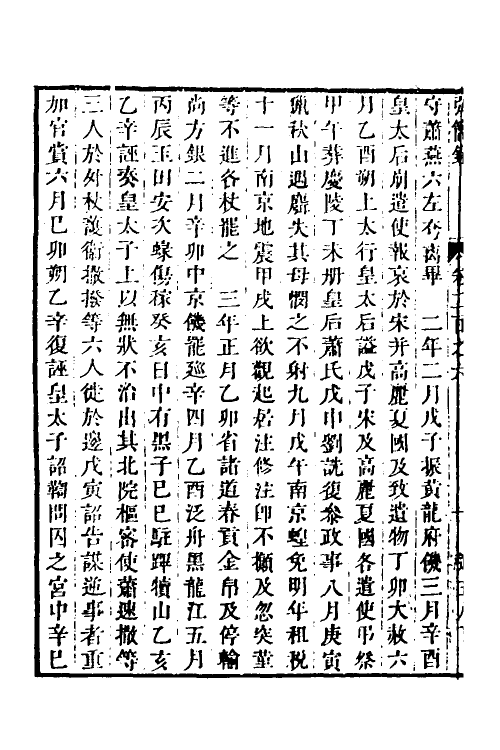 守蕭燕六左夷離畢　二年二月戊子振黃龍府饑三月辛酉
皇太后崩遣使報哀於宋并高麗夏國及致遺物丁卯大赦六
月乙酉朔上太行皇太后謚戊子宋及高麗夏國各遣使弔祭
甲午葬慶陵丁未册皇后蕭氏戊申劉詵復參政事八月庚寅
獵秋山遇麛失其母憫之不射九月戊午南京蝗免明年租稅
十一月南京地震甲戌上欲觀起居注修注郎不攧及忽突堇
等不進各杖罷之　三年正月乙卯省諸道春貢金帛及停輸
尚方銀二月辛卯中京饑罷廵幸四月乙酉泛舟黑龍江五月
丙辰玉田安次蝝傷稼癸亥日中有黑子巳巳駐蹕犢山乙亥
乙辛誣奏皇太子上以無狀不治出其北院樞密使蕭速撒等
三人於外杖護衛撒撥等六人徙於邊戊寅詔告謀逆事者重
加官賞六月巳卯朔乙辛復誣皇太子詔鞫問囚之宮中辛巳